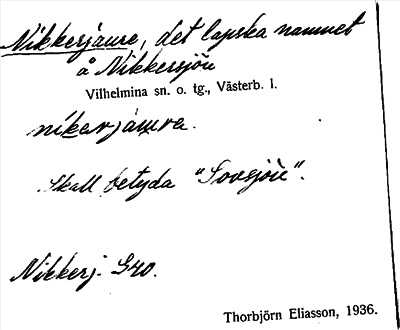 Nikkerjaure, det lapska namnet
å Nikkersjön
Vilhelmina sn. o. tg., Västerb. l.
nikerjaure.
Skall betyda "Sovsjön".
Nikkerj. G40.
Thorbjörn Eliasson, 1936.